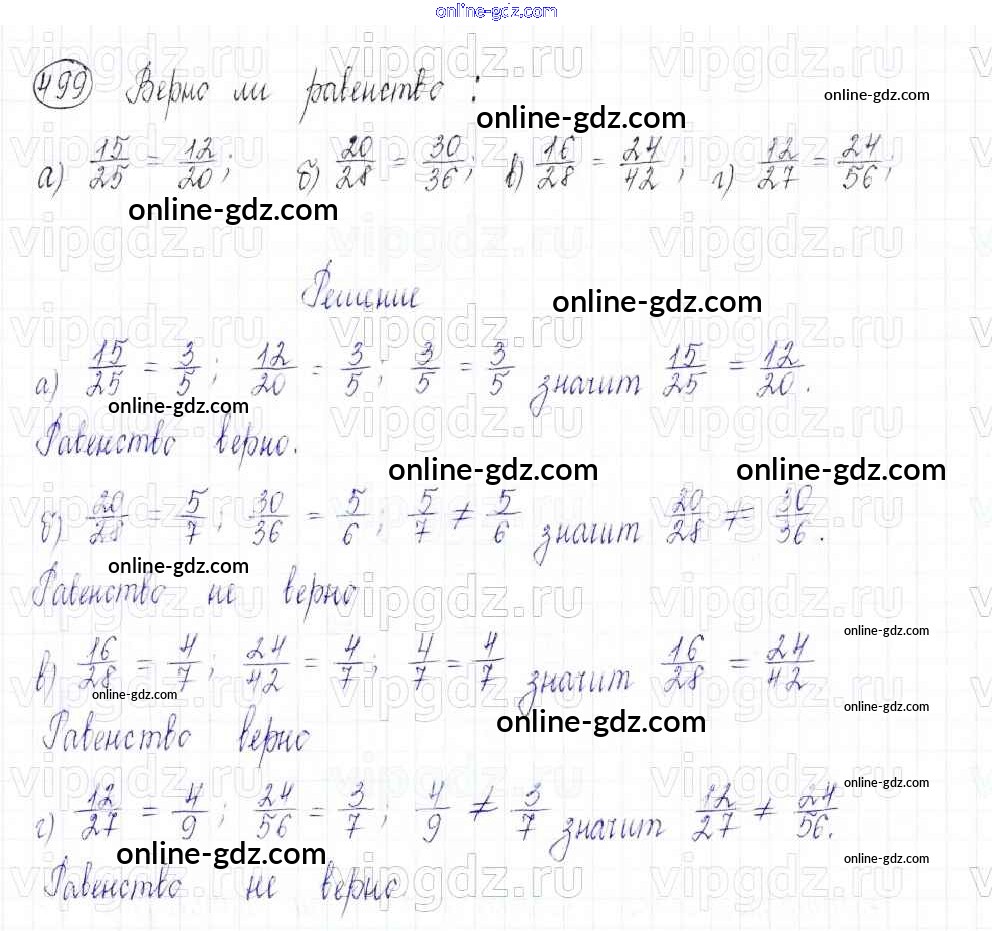 online-gdz.com
499 Верно ли равенство:
online-gdz.com
online-gdz.com
а) 15/25 = 12/20; б) 20/28 = 30/36; в) 16/28 = 24/42; г) 12/27 = 24/56;
online-gdz.com
vipgdz.ru vipgdz.ru vipgdz.ru
Решение
online-gdz.com
а) 15/25 = 3/5; 12/20 = 3/5; 3/5 = 3/5 значит 15/25 = 12/20.
online-gdz.com
Равенство верно.
online-gdz.com online-gdz.com
б) 20/28 = 5/7; 30/36 = 5/6; 5/7 ≠ 5/6 значит 20/28 ≠ 30/36.
online-gdz.com
Равенство не верно
online-gdz.com
в) 16/28 = 4/7; 24/42 = 4/7; 4/7 = 4/7 значит 16/28 = 24/42
online-gdz.com
online-gdz.com
Равенство верно
online-gdz.com
online-gdz.com
г) 12/27 = 4/9; 24/56 = 3/7; 4/9 ≠ 3/7 значит 12/27 ≠ 24/56.
online-gdz.com
online-gdz.com
Равенство не верно